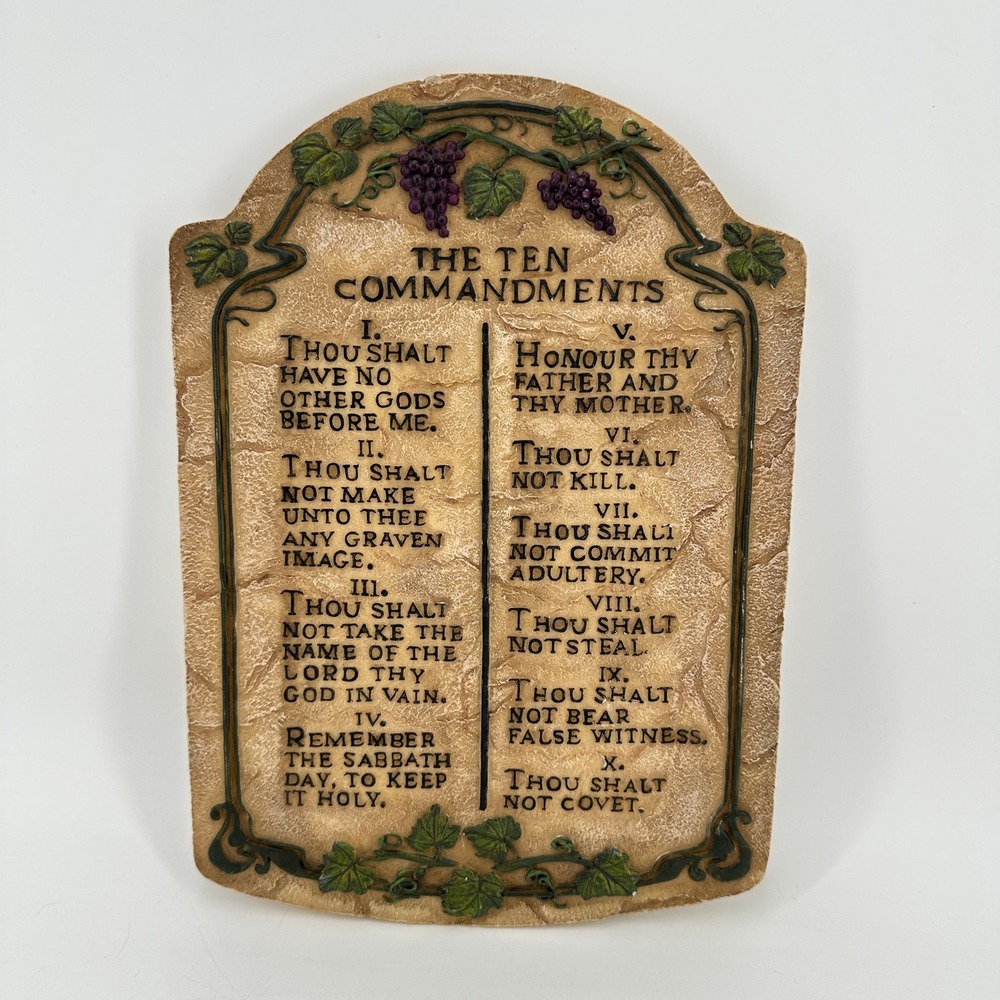 THE TEN
COMMANDMENTS
I.
THOU SHALT
HAVE NO
OTHER GODS
BEFORE ME.
II.
THOU SHALT
NOT MAKE
UNTO THEE
ANY GRAVEN
IMAGE.
III.
THOU SHALT
NOT TAKE THE
NAME OF THE
LORD THY
GOD IN VAIN.
IV.
REMEMBER
THE SABBATH
DAY, TO KEEP
IT HOLY.
V.
HONOUR THY
FATHER AND
THY MOTHER.
VI.
THOU SHALT
NOT KILL.
VII.
THOU SHALT
NOT COMMIT
ADULTERY.
VIII.
THOU SHALT
NOT STEAL.
IX.
THOU SHALT
NOT BEAR
FALSE WITNESS.
X.
THOU SHALT
NOT COVET.